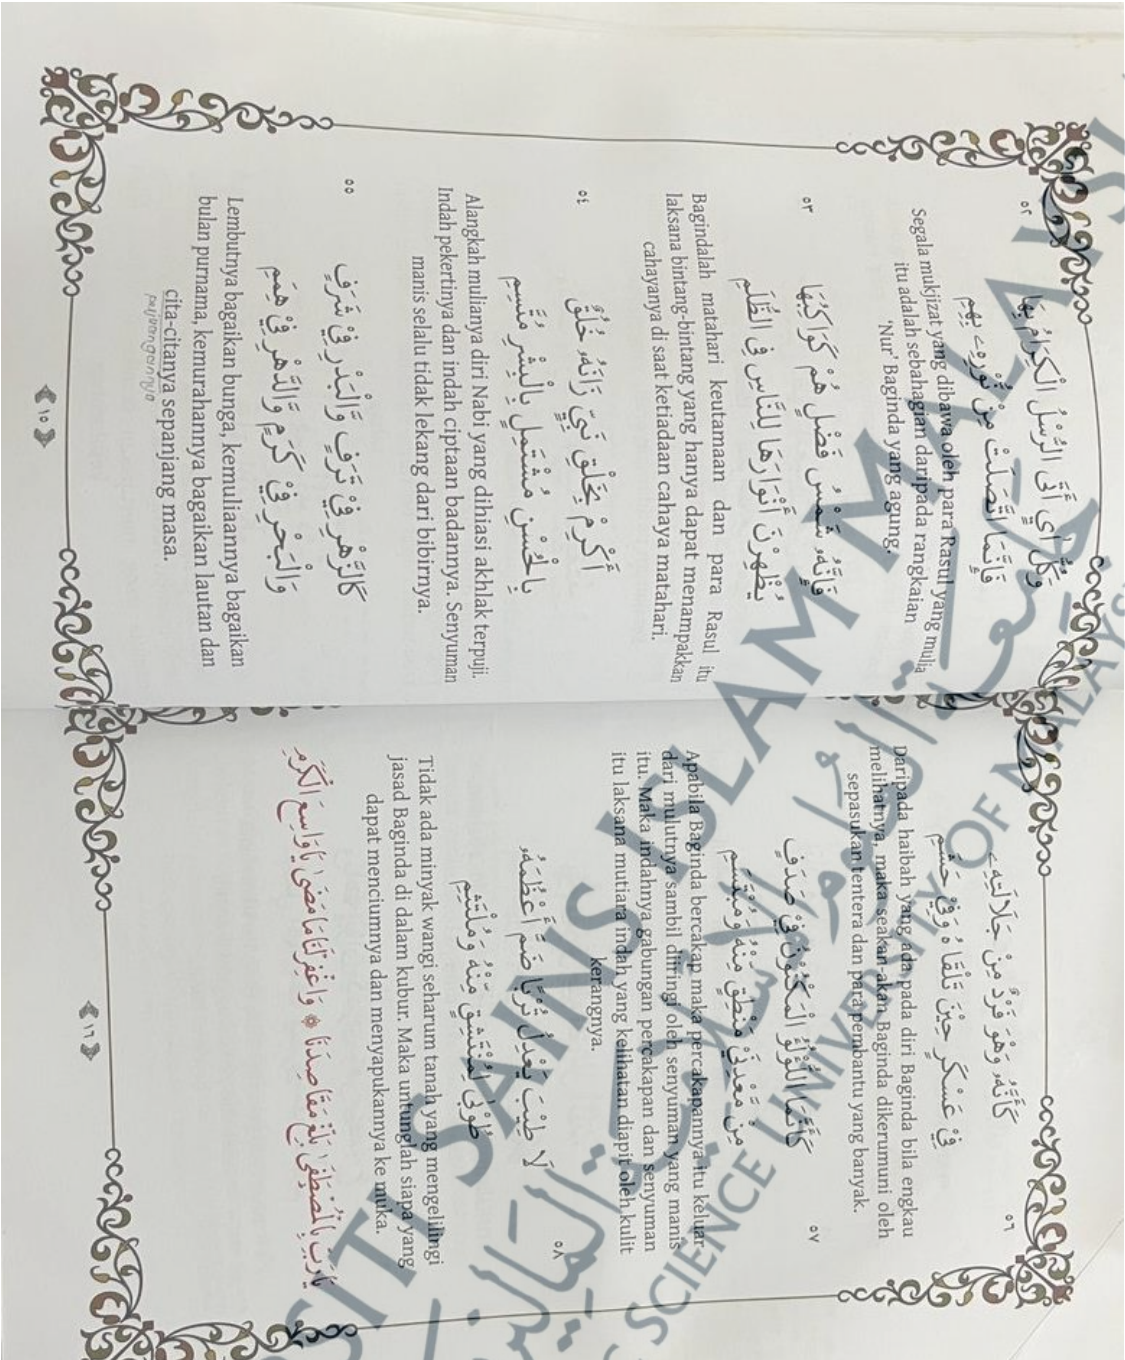 ٥٢
وَكُلُّ اٰيٍ أَتَى الرُّسْلُ الْكِرَامُ بِهَا
فَإِنَّمَا اتَّصَلَتْ مِنْ نُّوْرِهٖ بِهِمِ
Segala mukjizat yang dibawa oleh para Rasul yang mulia
itu adalah sebahagian daripada rangkaian
'Nur' Baginda yang agung.
٥٣
فَإِنَّهُ شَمْسُ فَضْلٍ هُمْ كَوَاكِبُهَا
يُظْهِرْنَ أَنْوَارَهَا لِلنَّاسِ فِى الظُّلَمِ
Bagindalah matahari keutamaan dan para Rasul itu
laksana bintang-bintang yang hanya dapat menampakkan
cahayanya di saat ketiadaan cahaya matahari.
٥٤
أَكْرِمْ بِخَلْقِ نَبِيٍّ زَانَهُ خُلُقٌ
بِالْحُسْنِ مُشْتَمِلٍ بِالْبِشْرِ مُتَّسِمِ
Alangkah mulianya diri Nabi yang dihiasi akhlak terpuji.
Indah pekertinya dan indah ciptaan badannya. Senyuman
manis selalu tidak lekang dari bibirnya.
٥٥
كَالزَّهْرِ فِيْ تَرَفٍ وَّالْبَدْرِ فِيْ شَرَفٍ
وَالْبَحْرِ فِيْ كَرَمٍ وَّالدَّهْرِ فِيْ هِمَمِ
Lembutnya bagaikan bunga, kemuliaannya bagaikan
bulan purnama, kemurahannya bagaikan lautan dan
cita-citanya sepanjang masa.
perjuangannya
١٥
٥٦
كَأَنَّهُ وَهْوَ فَرْدٌ مِنْ جَلَالَتِهٖ
فِيْ عَسْكَرٍ حِيْنَ تَلْقَاهُ وَفِيْ حَشَمِ
Daripada haibah yang ada pada diri Baginda bila engkau
melihatnya, maka seakan-akan Baginda dikerumuni oleh
sepasukan tentera dan para pembantu yang banyak.
٥٧
كَأَنَّمَا اللُّؤْلُؤُ الْمَكْنُوْنُ فِيْ صَدَفٍ
مِنْ مَّعْدِنَيْ مَنْطِقٍ مِّنْهُ وَمُبْتَسَمِ
Apabila Baginda bercakap maka percakapannya itu keluar
dari mulutnya sambil diiringi oleh senyuman yang manis
itu. Maka indahnya gabungan percakapan dan senyuman
itu laksana mutiara indah yang kelihatan diapit oleh kulit
kerangnya.
٥٨
لَا طِيْبَ يَعْدِلُ تُرْبًا ضَمَّ أَعْظُمَهُ
طُوْبٰى لِمُنْتَشِقٍ مِّنْهُ وَمُلْتَثِمِ
Tidak ada minyak wangi seharum tanah yang mengelilingi
jasad Baginda di dalam kubur. Maka untunglah siapa yang
dapat menciumnya dan menyapukannya ke muka.
يَارَبِّ بِالْمُصْطَفٰى بَلِّغْ مَقَاصِدَنَا ۞ وَاغْفِرْ لَنَا مَا مَضٰى يَاوَاسِعَ الْكَرَمِ
١٦